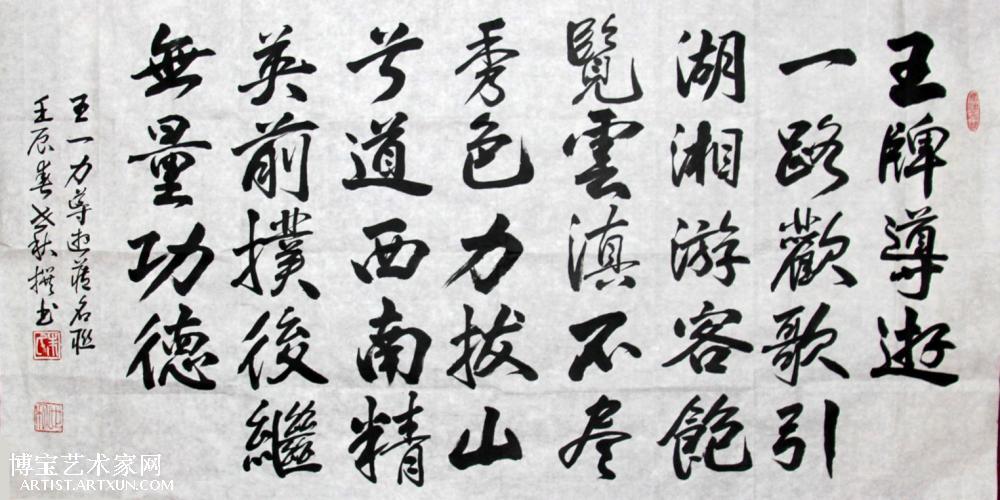 王牌導遊
一路歡歌引
湖湘游客飽
覽雲滇不尽
秀色力拔山
兮道西南精
英前撲後繼
無量功德
王一力导遊藏名联
壬辰春世秋撰书
博宝艺术家网
ARTIST.ARTXUN.COM